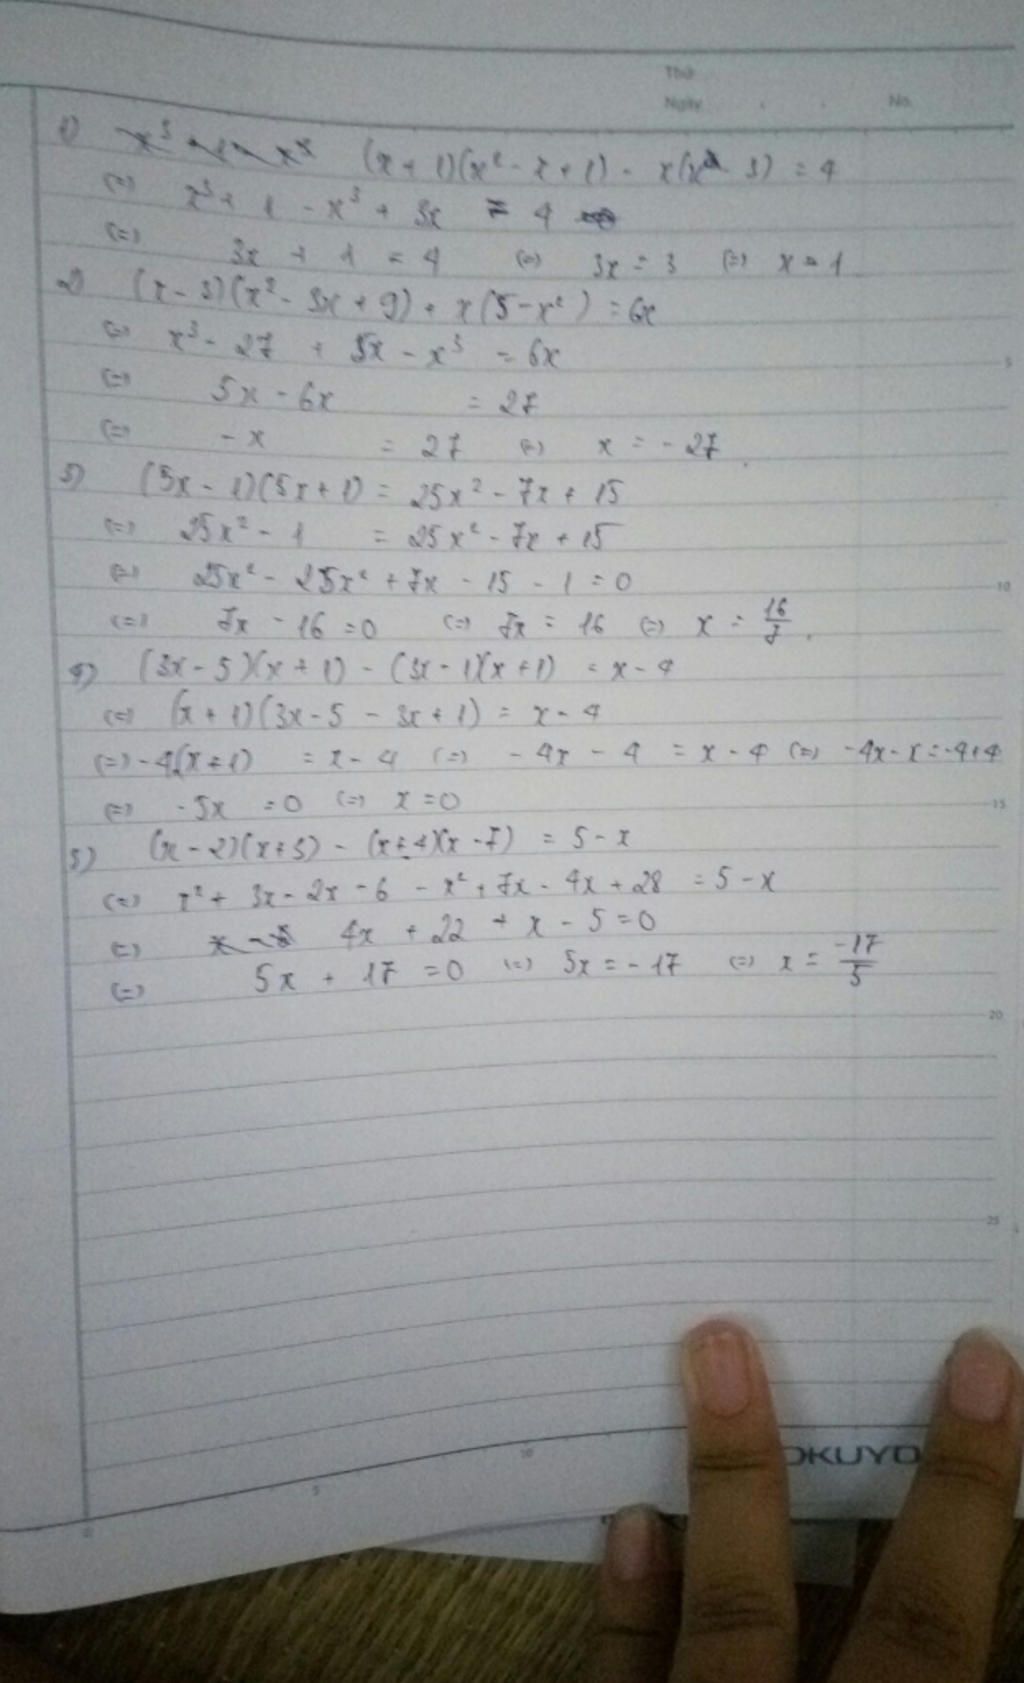 Thứ
Ngày . . No.
1) (x + 1)(x² - x + 1) - x(x² - 3) = 4
(=) x³ + 1 - x³ + 3x = 4
(=) 3x + 1 = 4 (=) 3x = 3 (=) x = 1
2) (x - 3)(x² - 3x + 9) + x(5 - x²) = 6x
(=) x³ - 27 + 5x - x³ = 6x
(=) 5x - 6x = 27
(=) - x = 27 (=) x = - 27 .
3) (5x - 1)(5x + 1) = 25x² - 7x + 15
(=) 25x² - 1 = 25x² - 7x + 15
(=) 25x² - 25x² + 7x - 15 - 1 = 0
(=) 7x - 16 = 0 (=) 7x = 16 (=) x = 16/7 .
4) (3x - 5)(x + 1) - (3x - 1)(x + 1) = x - 4
(=) (x + 1)(3x - 5 - 3x + 1) = x - 4
(=) - 4(x + 1) = x - 4 (=) - 4x - 4 = x - 4 (=) -4x - x = -4 + 4
(=) - 5x = 0 (=) x = 0
5) (x - 2)(x + 3) - (x + 4)(x - 7) = 5 - x
(=) x² + 3x - 2x - 6 - x² + 7x - 4x + 28 = 5 - x
(=) 4x + 22 + x - 5 = 0
(=) 5x + 17 = 0 (=) 5x = - 17 (=) x = -17/5
5
10
15
20
25
OKUYO
0 5 10